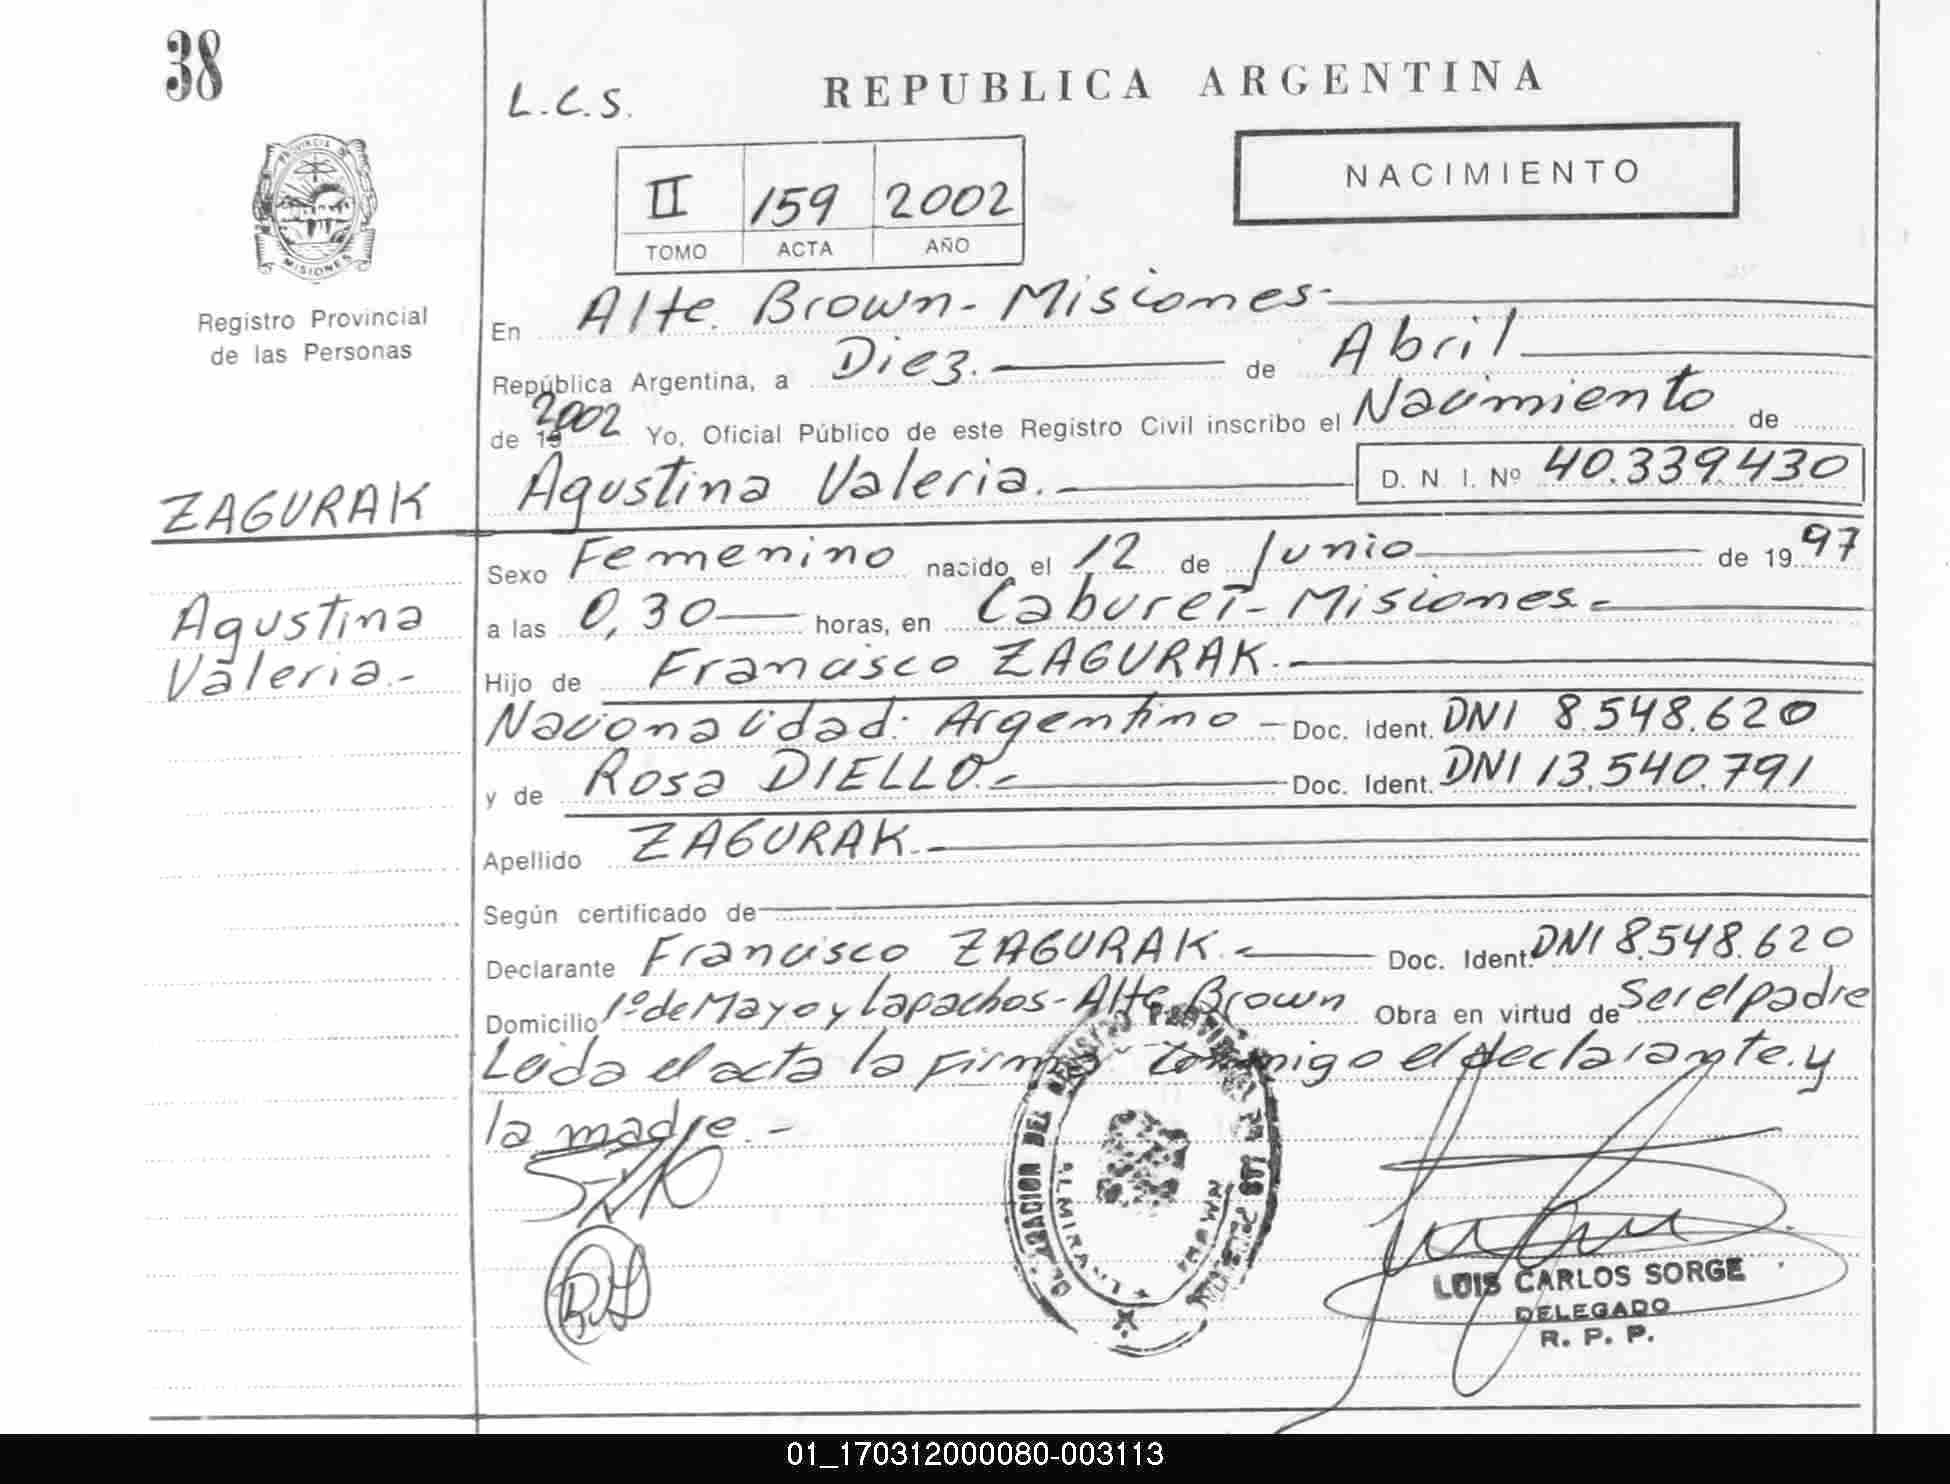 38
L.C.S.
REPUBLICA ARGENTINA
NACIMIENTO
II 159 2002
TOMO ACTA AÑO
PROVINCIA DE
MISIONES
Registro Provincial
de las Personas
En Alte. Brown - Misiones.-
República Argentina, a Diez. de Abril
de 19 2002 Yo, Oficial Público de este Registro Civil inscribo el Nacimiento de
Agustina Valeria. D. N. I. Nº 40.339.430
ZAGURAK
Sexo Femenino nacido el 12 de Junio de 1997
Agustina
Valeria.-
a las 0,30 horas, en Cabureí - Misiones.-
Hijo de Francisco ZAGURAK.-
Nacionalidad: Argentino - Doc. Ident. DNI 8.548.620
y de Rosa DIELLO.- Doc. Ident. DNI 13.540.791
Apellido ZAGURAK.-
Según certificado de
Declarante Francisco ZAGURAK.- Doc. Ident. DNI 8.548.620
Domicilio 1º de Mayo y Lapachos - Alte Brown Obra en virtud de Ser el padre
Leida el acta la firma conmigo el declarante. y
la madre.-
LUIS CARLOS SORGE
DELEGADO
R. P. P.
01_170312000080-003113